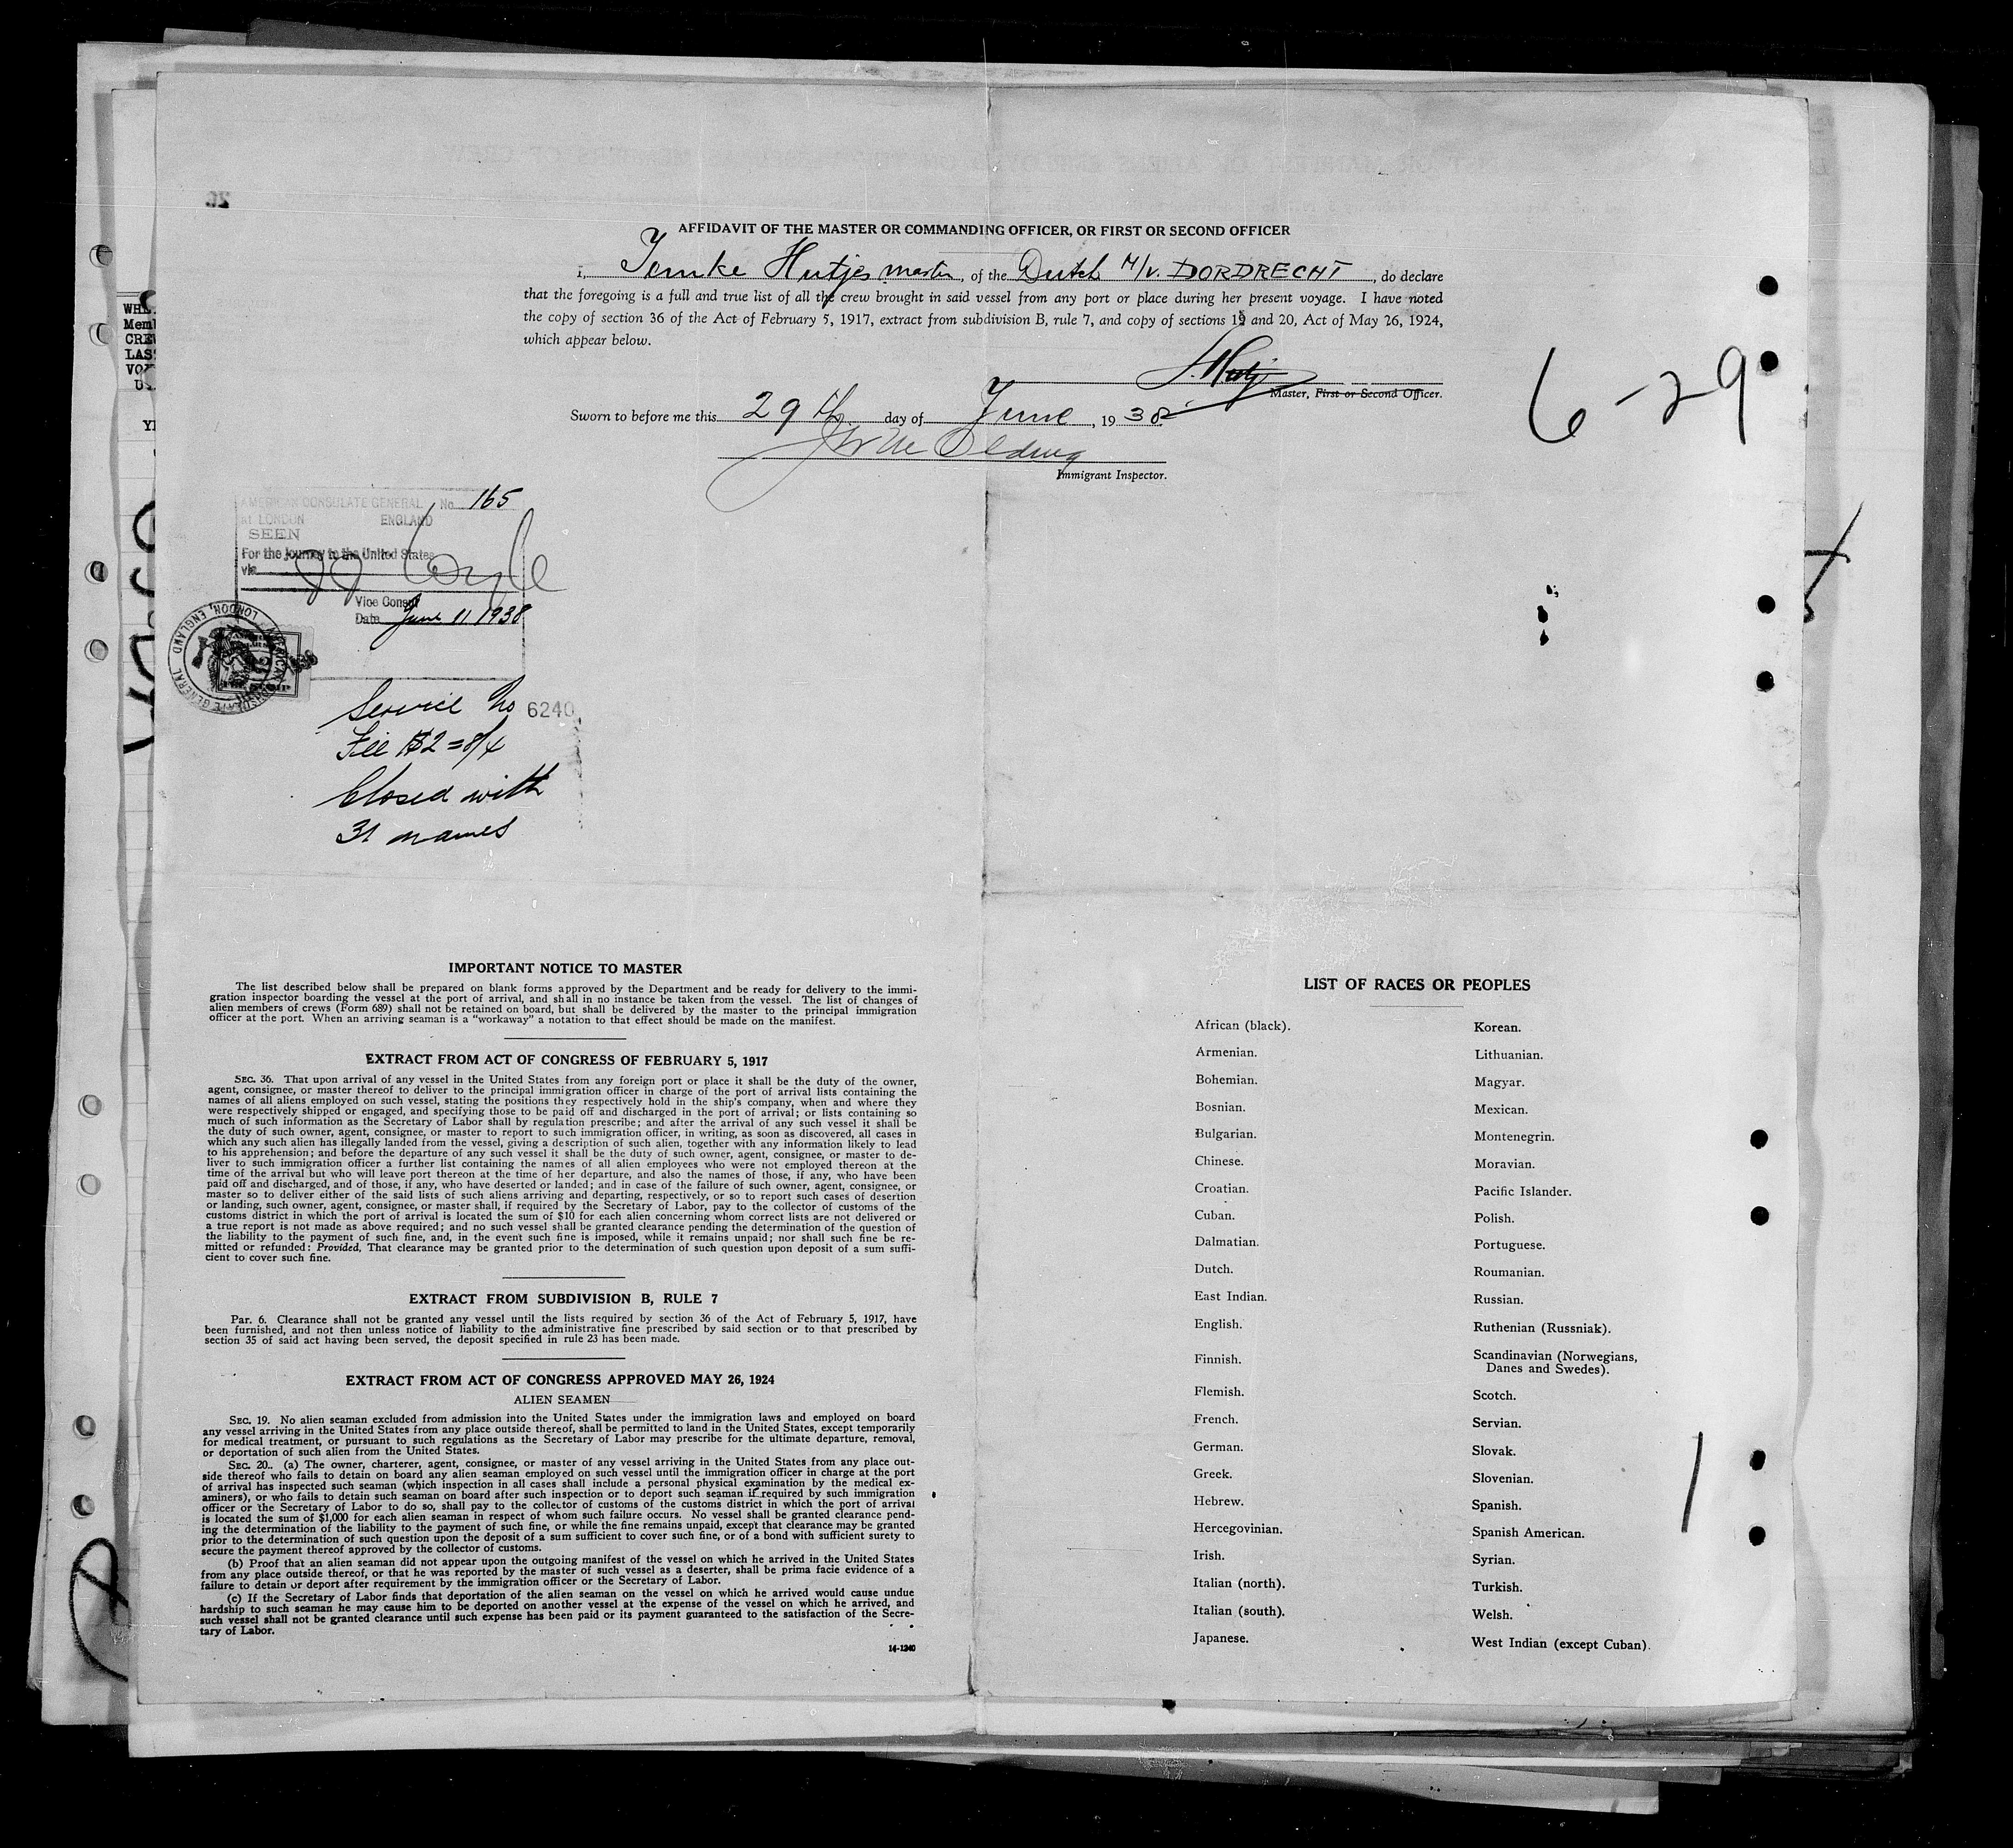 AFFIDAVIT OF THE MASTER OR COMMANDING OFFICER, OR FIRST OR SECOND OFFICER
I, Temke Hutjes master, of the Dutch M/V. DORDRECHT, do declare
that the foregoing is a full and true list of all the crew brought in said vessel from any port or place during her present voyage. I have noted
the copy of section 36 of the Act of February 5, 1917, extract from subdivision B, rule 7, and copy of sections 19 and 20, Act of May 26, 1924,
which appear below.
Master, First or Second Officer.
6-29
Sworn to before me this 29th day of June, 1938
Immigrant Inspector.
AMERICAN CONSULATE GENERAL No. 165
at LONDON ENGLAND
SEEN
For the journey to the United States
via
Vice Consul
Date June 11 1938
Service No 6240
Fee $2 = 8/4
Closed with
31 names
IMPORTANT NOTICE TO MASTER
The list described below shall be prepared on blank forms approved by the Department and be ready for delivery to the immi-
gration inspector boarding the vessel at the port of arrival, and shall in no instance be taken from the vessel. The list of changes of
alien members of crews (Form 689) shall not be retained on board, but shall be delivered by the master to the principal immigration
officer at the port. When an arriving seaman is a "workaway" a notation to that effect should be made on the manifest.
EXTRACT FROM ACT OF CONGRESS OF FEBRUARY 5, 1917
SEC. 36. That upon arrival of any vessel in the United States from any foreign port or place it shall be the duty of the owner,
agent, consignee, or master thereof to deliver to the principal immigration officer in charge of the port of arrival lists containing the
names of all aliens employed on such vessel, stating the positions they respectively hold in the ship's company, when and where they
were respectively shipped or engaged, and specifying those to be paid off and discharged in the port of arrival; or lists containing so
much of such information as the Secretary of Labor shall by regulation prescribe; and after the arrival of any such vessel it shall be
the duty of such owner, agent, consignee, or master to report to such immigration officer, in writing, as soon as discovered, all cases in
which any such alien has illegally landed from the vessel, giving a description of such alien, together with any information likely to lead
to his apprehension; and before the departure of any such vessel it shall be the duty of such owner, agent, consignee, or master to de-
liver to such immigration officer a further list containing the names of all alien employees who were not employed thereon at the
time of the arrival but who will leave port thereon at the time of her departure, and also the names of those, if any, who have been
paid off and discharged, and of those, if any, who have deserted or landed; and in case of the failure of such owner, agent, consignee, or
master so to deliver either of the said lists of such aliens arriving and departing, respectively, or so to report such cases of desertion
or landing, such owner, agent, consignee, or master shall, if required by the Secretary of Labor, pay to the collector of customs of the
customs district in which the port of arrival is located the sum of $10 for each alien concerning whom correct lists are not delivered or
a true report is not made as above required; and no such vessel shall be granted clearance pending the determination of the question of
the liability to the payment of such fine, and, in the event such fine is imposed, while it remains unpaid; nor shall such fine be re-
mitted or refunded: Provided, That clearance may be granted prior to the determination of such question upon deposit of a sum suffi-
cient to cover such fine.
EXTRACT FROM SUBDIVISION B, RULE 7
Par. 6. Clearance shall not be granted any vessel until the lists required by section 36 of the Act of February 5, 1917, have
been furnished, and not then unless notice of liability to the administrative fine prescribed by said section or to that prescribed by
section 35 of said act having been served, the deposit specified in rule 23 has been made.
EXTRACT FROM ACT OF CONGRESS APPROVED MAY 26, 1924
ALIEN SEAMEN
SEC. 19. No alien seaman excluded from admission into the United States under the immigration laws and employed on board
any vessel arriving in the United States from any place outside thereof, shall be permitted to land in the United States, except temporarily
for medical treatment, or pursuant to such regulations as the Secretary of Labor may prescribe for the ultimate departure, removal,
or deportation of such alien from the United States.
SEC. 20. (a) The owner, charterer, agent, consignee, or master of any vessel arriving in the United States from any place out-
side thereof who fails to detain on board any alien seaman employed on such vessel until the immigration officer in charge at the port
of arrival has inspected such seaman (which inspection in all cases shall include a personal physical examination by the medical ex-
aminers), or who fails to detain such seaman on board after such inspection or to deport such seaman if required by such immigration
officer or the Secretary of Labor to do so, shall pay to the collector of customs of the customs district in which the port of arrival
is located the sum of $1,000 for each alien seaman in respect of whom such failure occurs. No vessel shall be granted clearance pend-
ing the determination of the liability to the payment of such fine, or while the fine remains unpaid, except that clearance may be granted
prior to the determination of such question upon the deposit of a sum sufficient to cover such fine, or of a bond with sufficient surety to
secure the payment thereof approved by the collector of customs.
(b) Proof that an alien seaman did not appear upon the outgoing manifest of the vessel on which he arrived in the United States
from any place outside thereof, or that he was reported by the master of such vessel as a deserter, shall be prima facie evidence of a
failure to detain or deport after requirement by the immigration officer or the Secretary of Labor.
(c) If the Secretary of Labor finds that deportation of the alien seaman on the vessel on which he arrived would cause undue
hardship to such seaman he may cause him to be deported on another vessel at the expense of the vessel on which he arrived, and
such vessel shall not be granted clearance until such expense has been paid or its payment guaranteed to the satisfaction of the Secre-
tary of Labor.
14-1240
LIST OF RACES OR PEOPLES
African (black).
Armenian.
Bohemian.
Bosnian.
Bulgarian.
Chinese.
Croatian.
Cuban.
Dalmatian.
Dutch.
East Indian.
English.
Finnish.
Flemish.
French.
German.
Greek.
Hebrew.
Hercegovinian.
Irish.
Italian (north).
Italian (south).
Japanese.
Korean.
Lithuanian.
Magyar.
Mexican.
Montenegrin.
Moravian.
Pacific Islander.
Polish.
Portuguese.
Roumanian.
Russian.
Ruthenian (Russniak).
Scandinavian (Norwegians,
Danes and Swedes).
Scotch.
Servian.
Slovak.
Slovenian.
Spanish.
Spanish American.
Syrian.
Turkish.
Welsh.
West Indian (except Cuban).